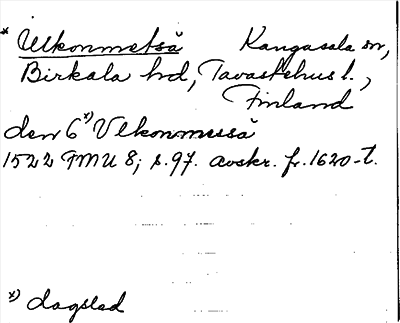 * Ulkonmetsä Kangasala sn,
Birkala hd, Tavastehus l.,
Finland
den 6 *) Vlkonmessä
1522 FMU 8; s. 97. avskr. fr. 1620-t.
*) dagsled